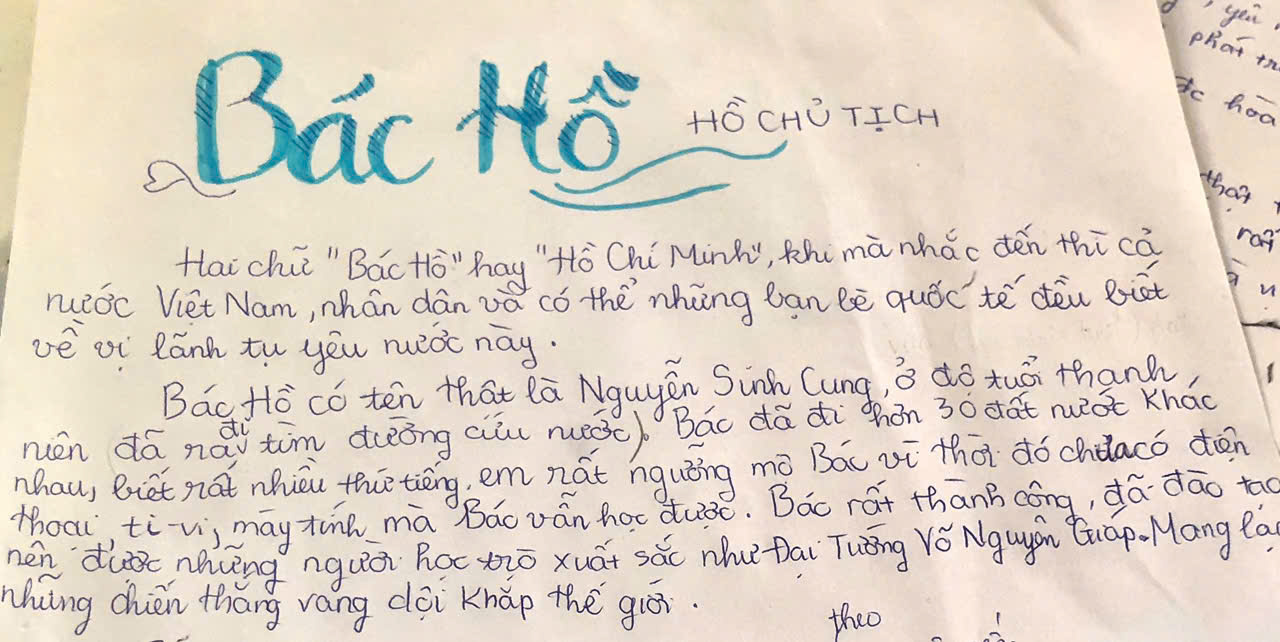 Bác Hồ HỒ CHỦ TỊCH
Hai chữ "Bác Hồ" hay "Hồ Chí Minh", khi mà nhắc đến thì cả
nước Việt Nam, nhân dân và có thể những bạn bè quốc tế đều biết
về vị lãnh tụ yêu nước này.
Bác Hồ có tên thật là Nguyễn Sinh Cung, ở độ tuổi thanh
niên đã ra đi tìm đường cứu nước). Bác đã đi hơn 30 đất nướt khác
nhau, biết rất nhiều thứ tiếng, em rất ngưỡng mộ Bác vì thời đó chưa có điện
thoại, ti-vi, máy tính mà Bác vẫn học được. Bác rất thành công, đã đào tạo
nên được những người học trò xuất sắc như Đại Tướng Võ Nguyên Giáp. Mang lại
những chiến thắng vang dội khắp thế giới.
theo
yêu
phát
hòa
thật